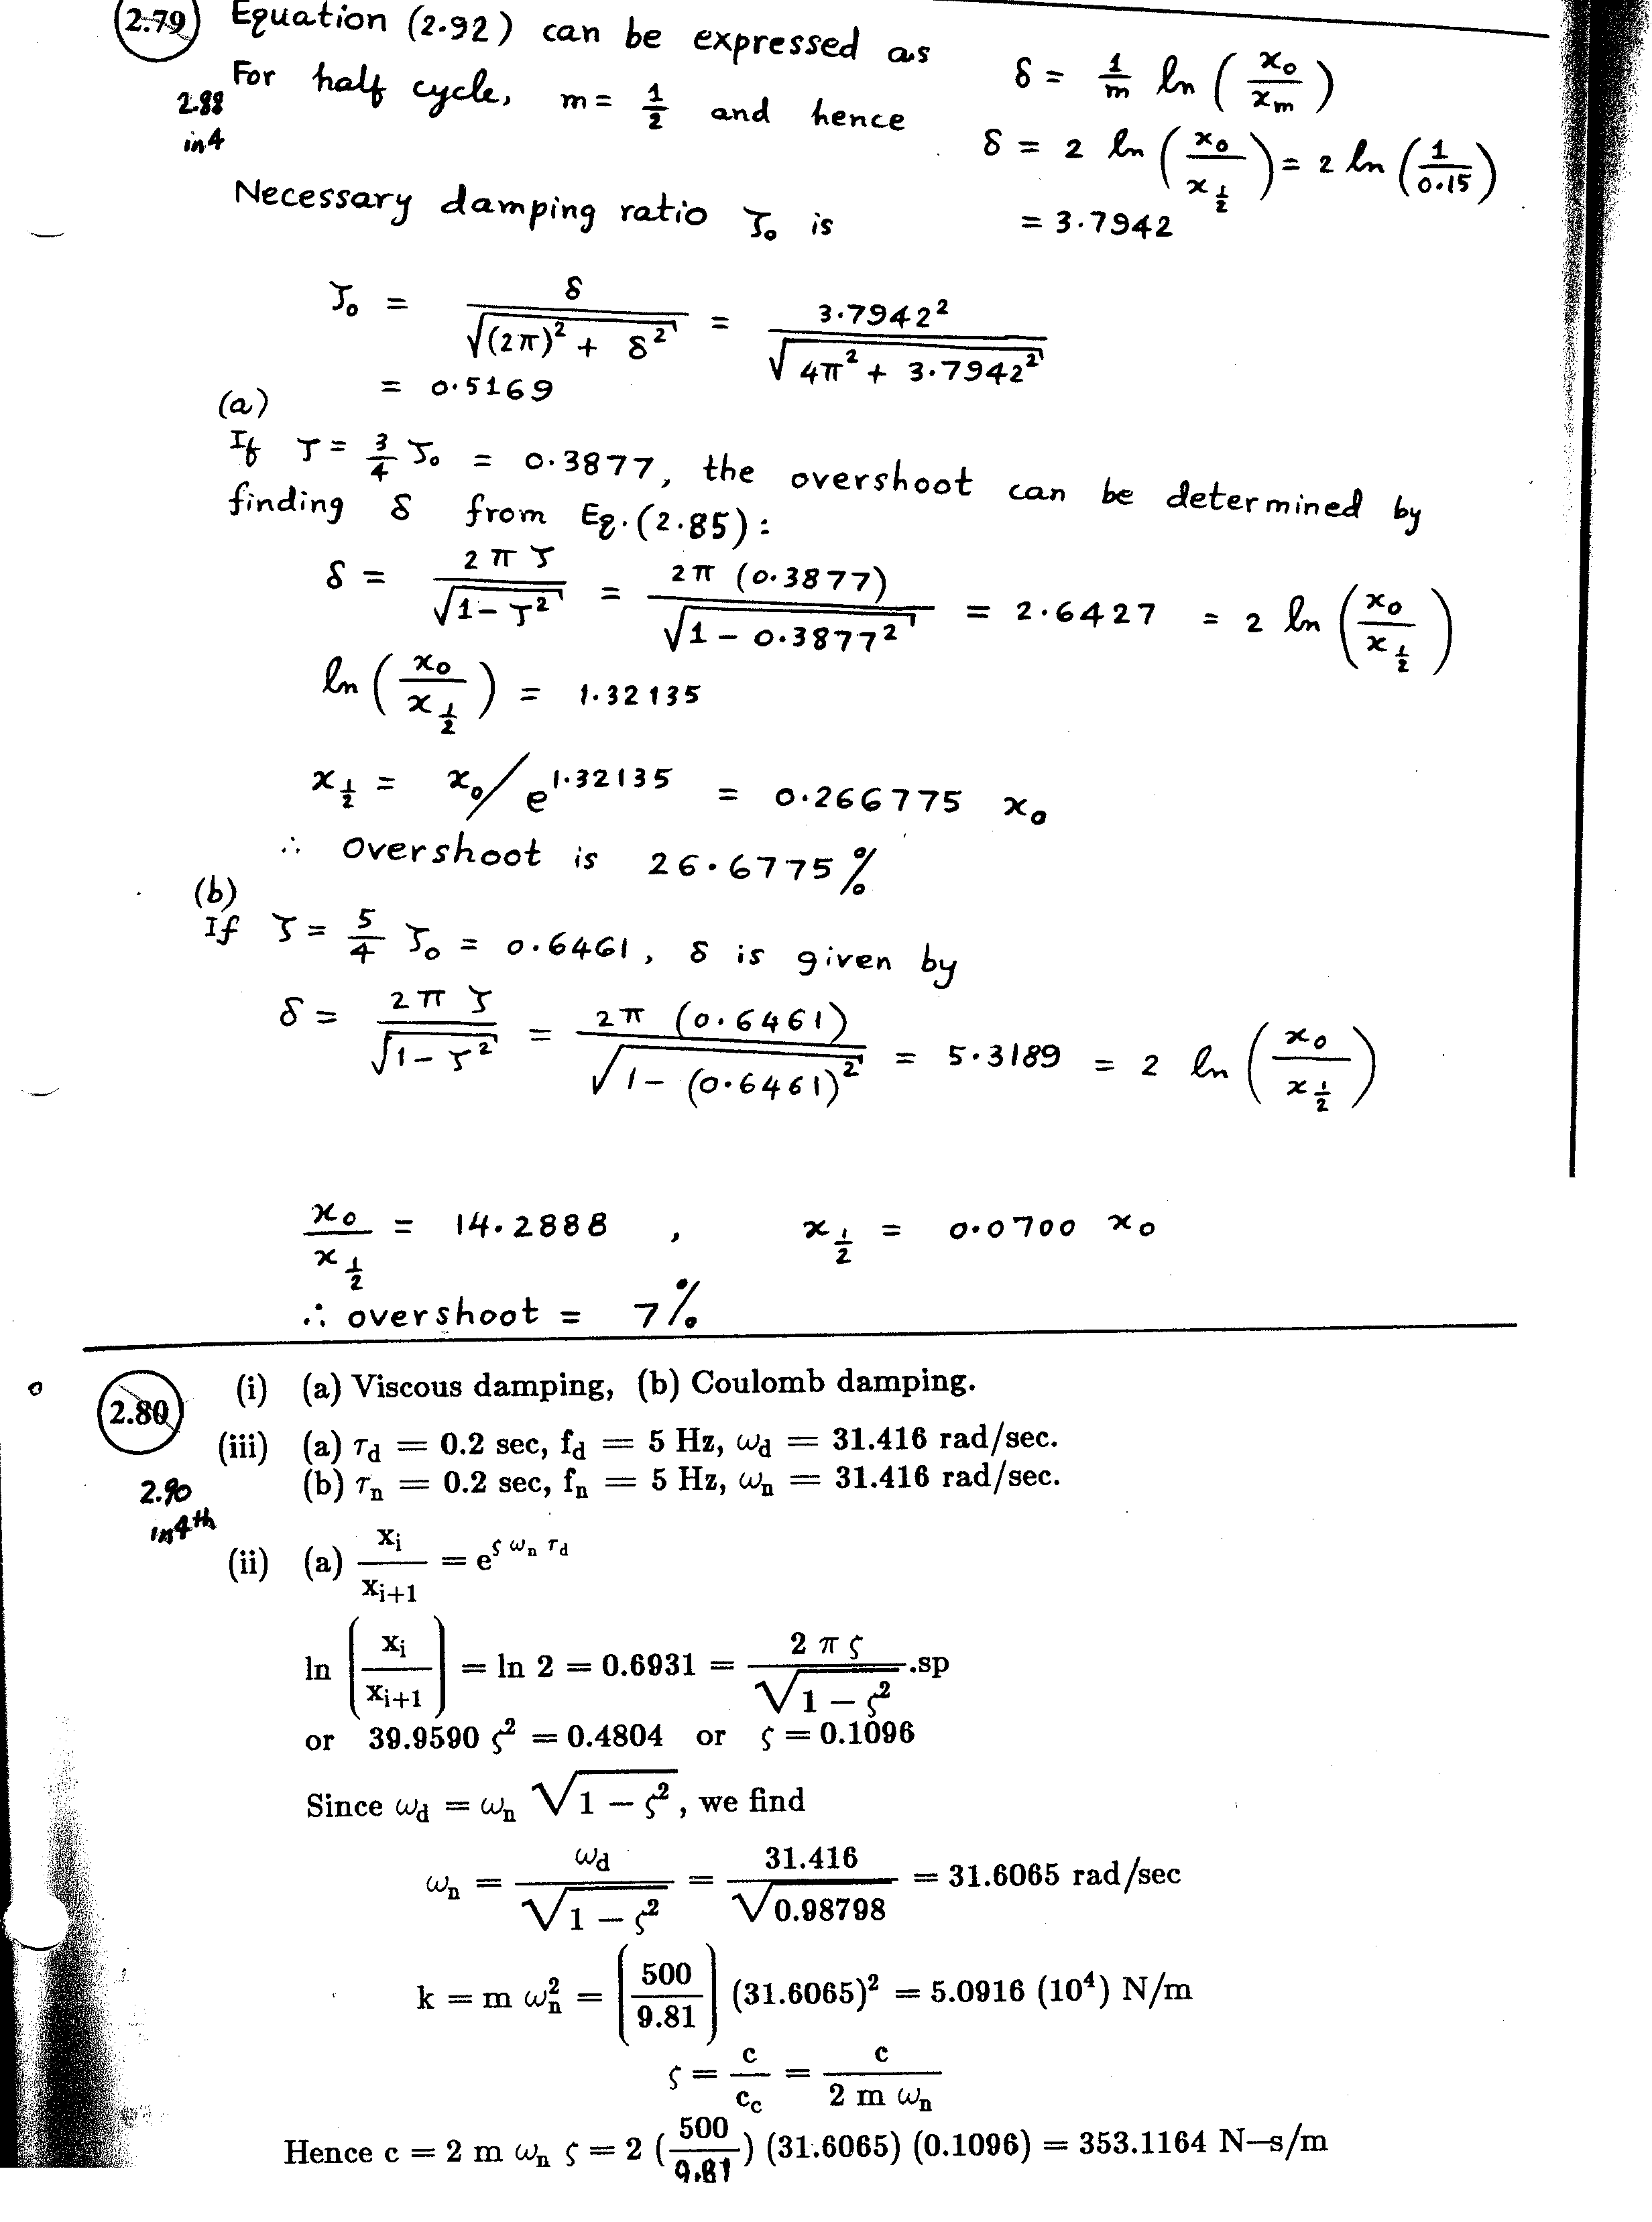 2.79 Equation (2.92) can be expressed as δ = 1/m ln (x₀/xₘ)
2.88 in 4
For half cycle, m = 1/2 and hence δ = 2 ln (x₀/x_½) = 2 ln (1/0.15)
= 3.7942
Necessary damping ratio ζ₀ is
ζ₀ = δ/√((2π)² + δ²) = 3.7942²/√(4π² + 3.7942²)
= 0.5169
(a)
If ζ = 3/4 ζ₀ = 0.3877, the overshoot can be determined by
finding δ from Eq.(2.85):
δ = 2πζ/√(1-ζ²) = 2π (0.3877)/√(1 - 0.3877²) = 2.6427 = 2 ln (x₀/x_½)
ln (x₀/x_½) = 1.32135
x_½ = x₀/e^1.32135 = 0.266775 x₀
∴ overshoot is 26.6775%
(b)
If ζ = 5/4 ζ₀ = 0.6461, δ is given by
δ = 2πζ/√(1-ζ²) = 2π (0.6461)/√(1 - (0.6461)²) = 5.3189 = 2 ln (x₀/x_½)
x₀/x_½ = 14.2888 , x_½ = 0.0700 x₀
∴ overshoot = 7%
2.80 (i) (a) Viscous damping, (b) Coulomb damping.
(iii) (a) τ_d = 0.2 sec, f_d = 5 Hz, ω_d = 31.416 rad/sec.
(b) τₙ = 0.2 sec, fₙ = 5 Hz, ωₙ = 31.416 rad/sec.
2.90
in 4th
(ii) (a) xᵢ/xᵢ₊₁ = e^(ζ ωₙ τ_d)
ln (xᵢ/xᵢ₊₁) = ln 2 = 0.6931 = 2 π ζ/√(1 − ζ²).sp
or 39.9590 ζ² = 0.4804 or ζ = 0.1096
Since ω_d = ωₙ √(1 − ζ²), we find
ωₙ = ω_d/√(1 − ζ²) = 31.416/√0.98798 = 31.6065 rad/sec
k = m ωₙ² = (500/9.81) (31.6065)² = 5.0916 (10⁴) N/m
ζ = c/c_c = c/(2 m ωₙ)
Hence c = 2 m ωₙ ζ = 2 (500/9.81) (31.6065) (0.1096) = 353.1164 N−s/m